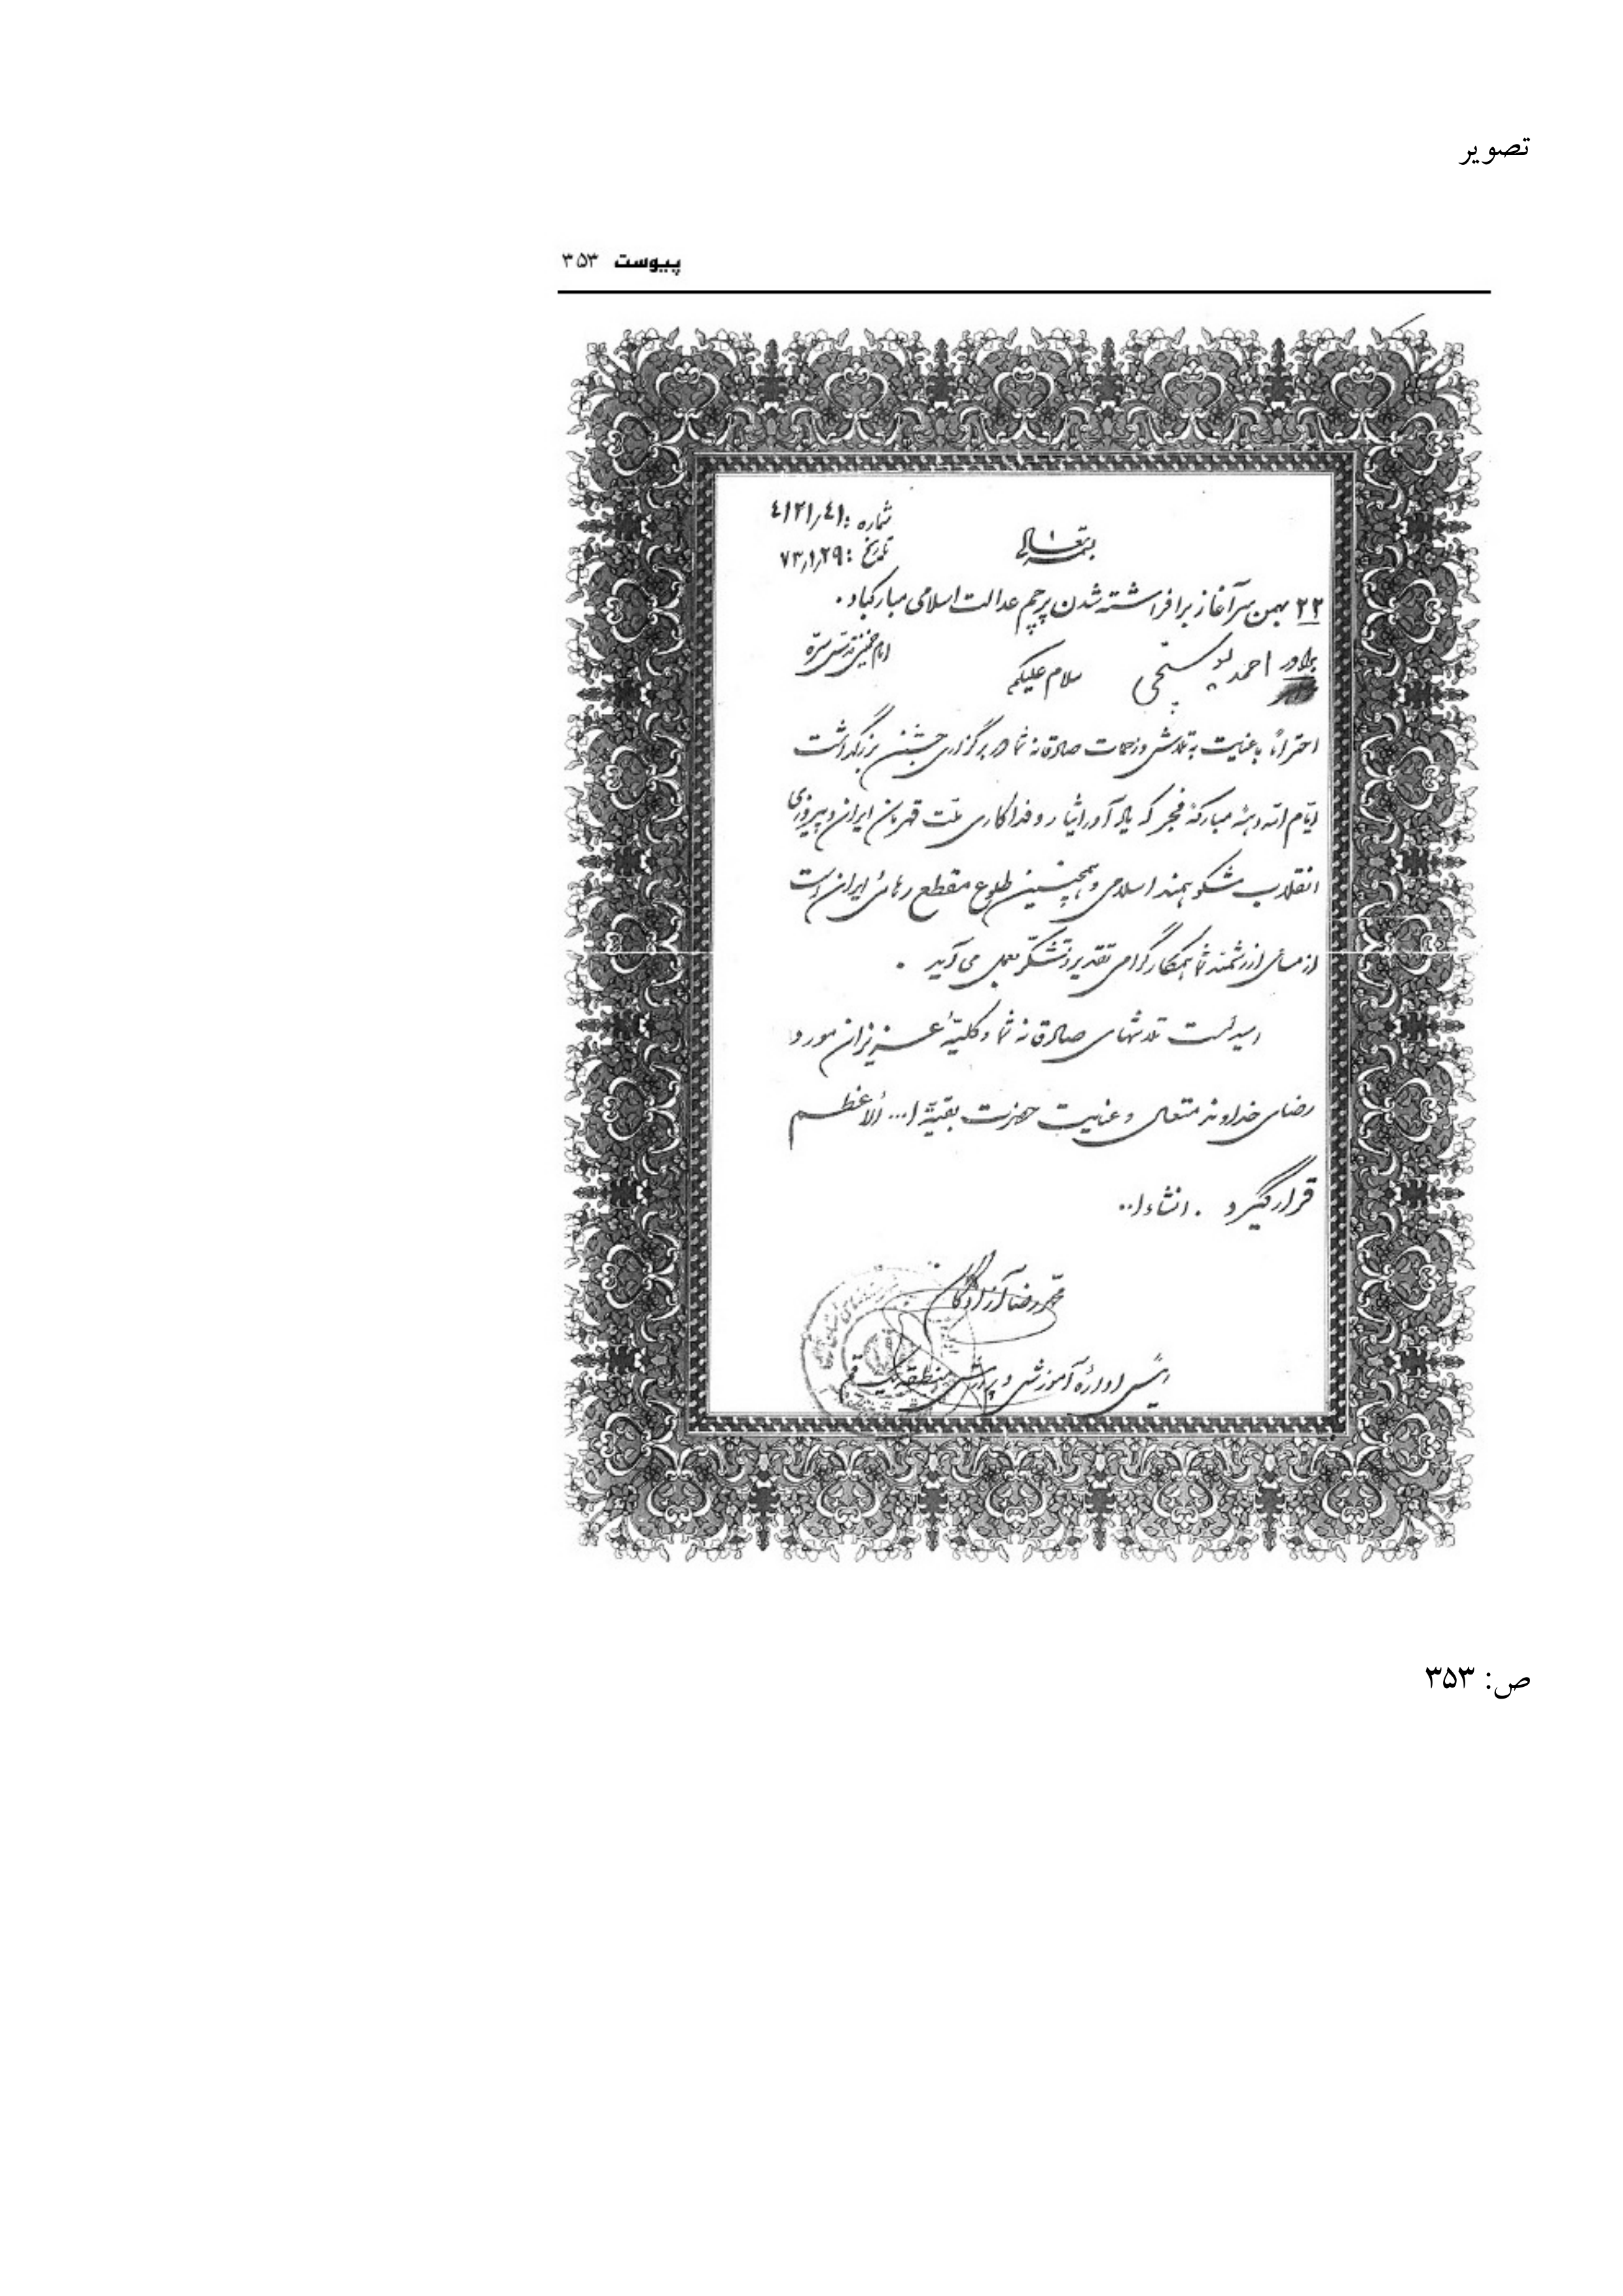 تصویر
پیوست ۳۵۳
شماره: ۴۱۲۱٫۴۱
تاریخ: ۷۳٫۱٫۲۹
بسمه تعالی
۲۲ بهمن سرآغاز برافراشته شدن پرچم عدالت اسلامی مبارکباد.
امام خمینی قدس سره
برادر احمد سلام علیکم
احتراماً با عنایت به تلاش و زحمات صادقانه شما در برگزاری جشن بزرگداشت
ایام الله دهه مبارکه فجر که یادآور ایثار و فداکاری ملت قهرمان ایران و پیروزی
انقلاب شکوهمند اسلامی و همچنین طلوع مقطع رهائی ایران است
از مساعی ارزشمند شما همکار گرامی تقدیر و تشکر بعمل می آید.
امید است تلاشهای صادقانه شما و کلیه عزیزان مورد
رضای خداوند متعال و عنایت حضرت بقیة ا... الاعظم
قرار گیرد. انشاءا..
محمدرضا آزادگان
رئیس اداره آموزش و پرورش منطقه یک قم
ص: ۳۵۳